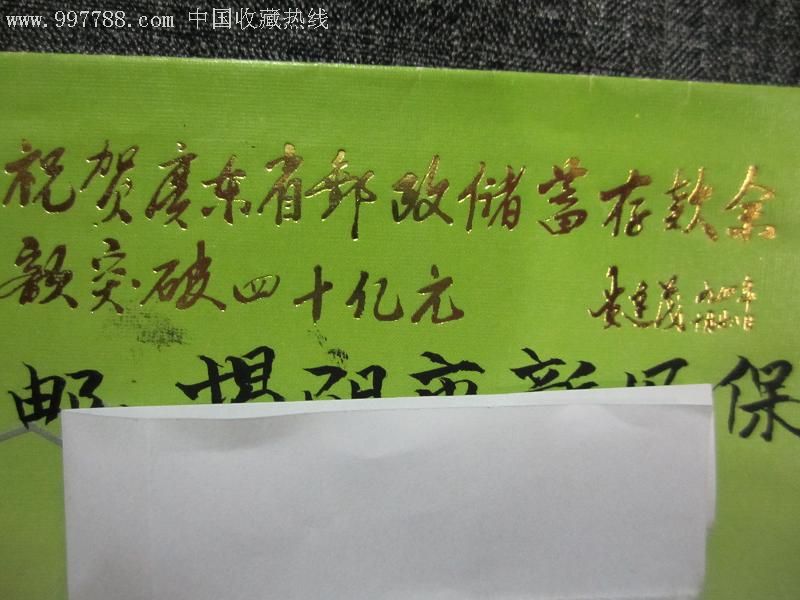 www.997788.com 中国收藏热线
祝贺广东省邮政储蓄存款余
额突破四十亿元
邮 揭阳市新 保